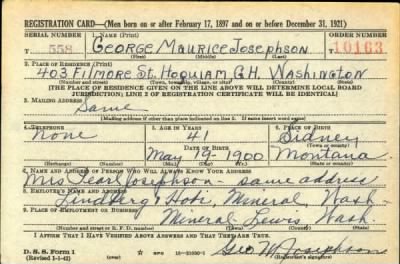 REGISTRATION CARD—(Men born on or after February 17, 1897 and on or before December 31, 1921)
SERIAL NUMBER 1. NAME (Print) ORDER NUMBER
T 558 George Maurice Josephson 10163
(First) (Middle) (Last)
2. PLACE OF RESIDENCE (Print)
403 Filmore St. Hoquiam G.H. Washington
[THE PLACE OF RESIDENCE GIVEN ON THE LINE ABOVE WILL DETERMINE LOCAL BOARD
JURISDICTION; LINE 2 OF REGISTRATION CERTIFICATE WILL BE IDENTICAL]
3. MAILING ADDRESS
Same
[Mailing address if other than place indicated on line 2. If same insert word same]
4. TELEPHONE 5. AGE IN YEARS 6. PLACE OF BIRTH
None 41 Sidney
DATE OF BIRTH (Town or county)
May 19-1900 Montana
(Exchange) (Number) (Mo.) (Day) (Yr.) (State or country)
7. NAME AND ADDRESS OF PERSON WHO WILL ALWAYS KNOW YOUR ADDRESS
Mrs Josephson - same address
8. EMPLOYER'S NAME AND ADDRESS
Lindberg Mineral, Wash.
9. PLACE OF EMPLOYMENT OR BUSINESS
Mineral Lewis Wash.
(Number and street or R. F. D. number) (Town) (County) (State)
I AFFIRM THAT I HAVE VERIFIED ABOVE ANSWERS AND THAT THEY ARE TRUE.
D. S. S. Form 1 GPO Geo M Josephson
(Revised 1-1-42) (Registrant's signature)